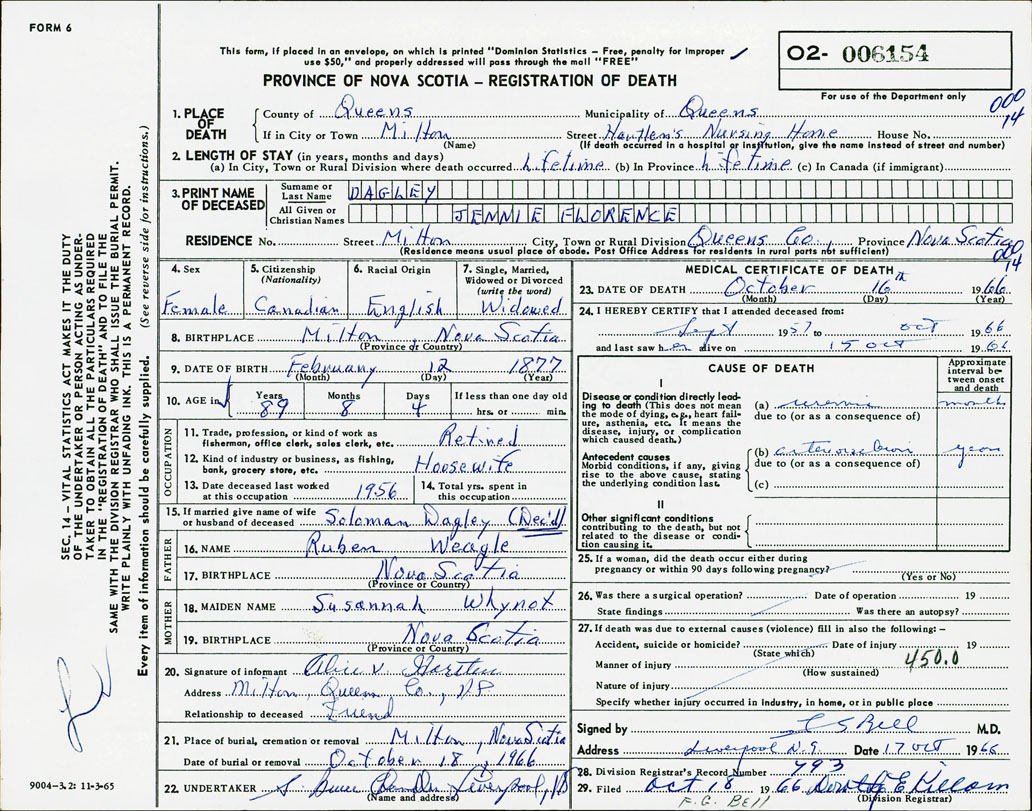 FORM 6
This form, if placed in an envelope, on which is printed "Dominion Statistics – Free, penalty for improper
use $50," and properly addressed will pass through the mail "FREE"
PROVINCE OF NOVA SCOTIA – REGISTRATION OF DEATH
02- 006154
For use of the Department only
000
14
1. PLACE OF DEATH
County of Queens Municipality of Queens
If in City or Town Milton Street Nursing Home House No.
(Name) (If death occurred in a hospital or institution, give the name instead of street and number)
2. LENGTH OF STAY (in years, months and days)
(a) In City, Town or Rural Division where death occurred Lifetime (b) In Province Lifetime (c) In Canada (if immigrant)
3. PRINT NAME OF DECEASED
Surname or Last Name DAGLEY
All Given or Christian Names JENNIE FLORENCE
RESIDENCE No. Street Milton City, Town or Rural Division Queens Co., Province Nova Scotia
(Residence means usual place of abode. Post Office Address for residents in rural parts not sufficient)
000
14
4. Sex Female
5. Citizenship (Nationality) Canadian
6. Racial Origin English
7. Single, Married, Widowed or Divorced (write the word) Widowed
8. BIRTHPLACE Milton, Nova Scotia
(Province or Country)
9. DATE OF BIRTH February 12 1877
(Month) (Day) (Year)
10. AGE in Years 89 Months 8 Days 4 If less than one day old hrs. or min.
OCCUPATION
11. Trade, profession, or kind of work as fisherman, office clerk, sales clerk, etc. Retired
12. Kind of industry or business, as fishing, bank, grocery store, etc. Hoosewife
13. Date deceased last worked at this occupation 1956
14. Total yrs. spent in this occupation
15. If married give name of wife or husband of deceased Soloman Dagley (Dec'd)
FATHER
16. NAME Ruben Weagle
17. BIRTHPLACE Nova Scotia
(Province or Country)
MOTHER
18. MAIDEN NAME Susannah Whynot
19. BIRTHPLACE Nova Scotia
(Province or Country)
20. Signature of informant Alice V.
Address Milton, Queens Co., NS
Relationship to deceased Friend
21. Place of burial, cremation or removal Milton, Nova Scotia
Date of burial or removal October 18, 1966
22. UNDERTAKER Liverpool, NS
(Name and address)
MEDICAL CERTIFICATE OF DEATH
23. DATE OF DEATH October 16th 1966
(Month) (Day) (Year)
24. I HEREBY CERTIFY that I attended deceased from:
Sept 1957 to oct 1966
and last saw her alive on 15 oct 1966
CAUSE OF DEATH
Approximate interval between onset and death
I
Disease or condition directly leading to death (This does not mean the mode of dying, e.g., heart failure, asthenia, etc. It means the disease, injury, or complication which caused death.)
(a) uremia months
due to (or as a consequence of)
Antecedent causes
Morbid conditions, if any, giving rise to the above cause, stating the underlying condition last.
(b) years
due to (or as a consequence of)
(c)
II
Other significant conditions contributing to the death, but not related to the disease or condition causing it.
25. If a woman, did the death occur either during pregnancy or within 90 days following pregnancy?
(Yes or No)
26. Was there a surgical operation? Date of operation 19
State findings Was there an autopsy?
27. If death was due to external causes (violence) fill in also the following:–
Accident, suicide or homicide? Date of injury 19
(State which)
Manner of injury 450.0
(How sustained)
Nature of injury
Specify whether injury occurred in Industry, in home, or in public place
Signed by Bell M.D.
Address Liverpool N.S. Date 17 oct 1966
28. Division Registrar's Record Number 793
29. Filed oct 18 1966 Dorothy E Killam
F.G. BELL (Division Registrar)
SEC. 14 – VITAL STATISTICS ACT MAKES IT THE DUTY
OF THE UNDERTAKER OR PERSON ACTING AS UNDER-
TAKER TO OBTAIN ALL THE PARTICULARS REQUIRED
IN THE "REGISTRATION OF DEATH" AND TO FILE THE
SAME WITH THE DIVISION REGISTRAR WHO SHALL ISSUE THE BURIAL PERMIT.
WRITE PLAINLY WITH UNFADING INK. THIS IS A PERMANENT RECORD.
Every item of information should be carefully supplied. (See reverse side for instructions.)
9004-3.2: 11-3-65